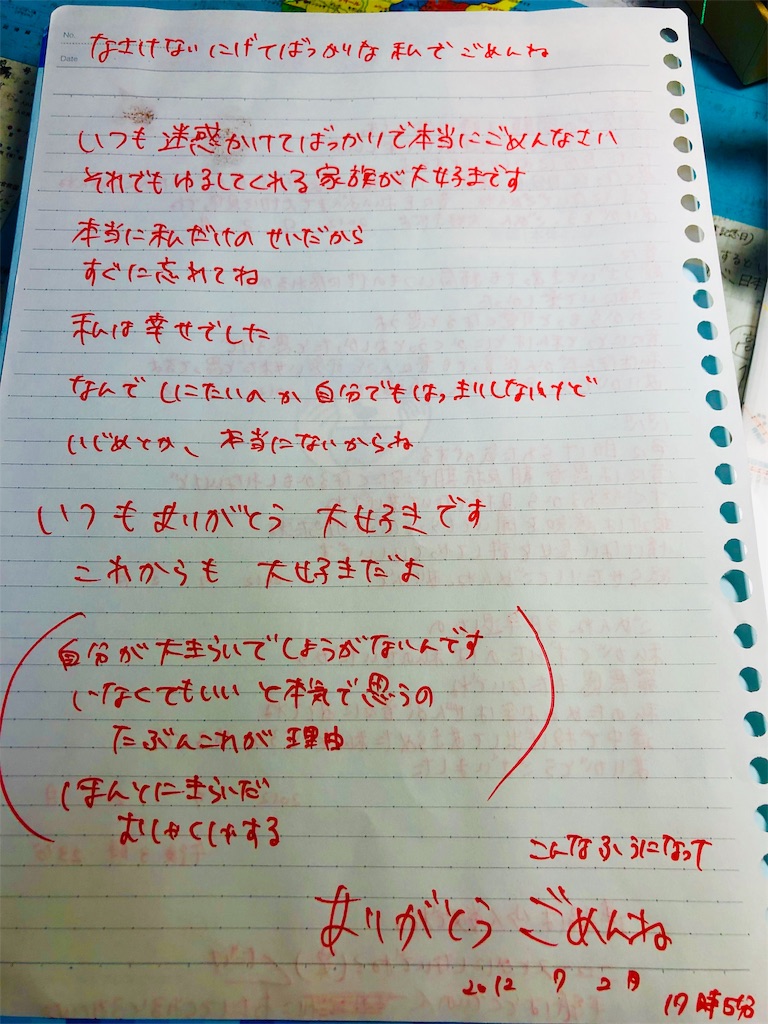 No.
Date
なさけない にげてばっかりな 私で ごめんね
いつも 迷惑かけてばっかりで本当にごめんなさい
それでもゆるしてくれる家族が大好きです
本当に私だけの せいだから
すぐに忘れてね
私は幸せでした
なんで しにたいのか 自分でもはっきりしないけど
いじめとか、本当にないからね
いつもありがとう 大好きです
これからも 大好きだよ
自分が大きらいでしょうがないんです
いなくてもいいと本気で思うの
たぶんこれが理由
ほんとにきらいだ
むしゃくしゃする
こんなふうになって
ありがとう ごめんね
2012 7 2月
17時5分